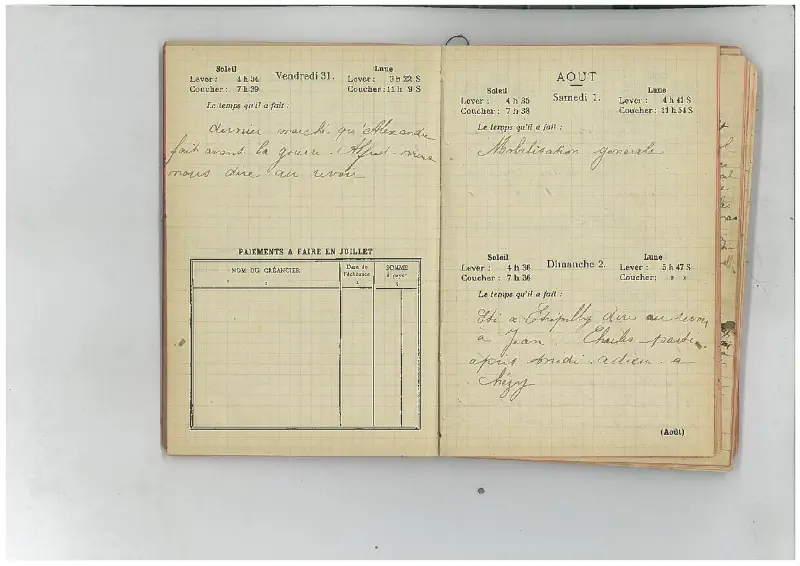 Soleil
Lever : 4 h 34
Coucher : 7 h 39
Vendredi 31.
Lune
Lever : 3 h 22 S
Coucher: 11 h 9 S
Le temps qu'il a fait :
dernier marché qu'Alexandre
fait avant la guerre. Alfred
nous dire au revoir
PAIEMENTS A FAIRE EN JUILLET
NOM DU CRÉANCIER
Date de l'échéance
SOMME à payer
AOUT
Soleil
Lever : 4 h 35
Coucher : 7 h 38
Samedi 1.
Lune
Lever : 4 h 41 S
Coucher: 11 h 54 S
Le temps qu'il a fait :
Mobilisation generale
Soleil
Lever : 4 h 36
Coucher : 7 h 36
Dimanche 2.
Lune
Lever : 5 h 47 S
Coucher: » »
Le temps qu'il a fait :
Eté a Etrépilly dire au revoir
a Jean. Charles parti
apres midi adieu a
Chézy
(Août)